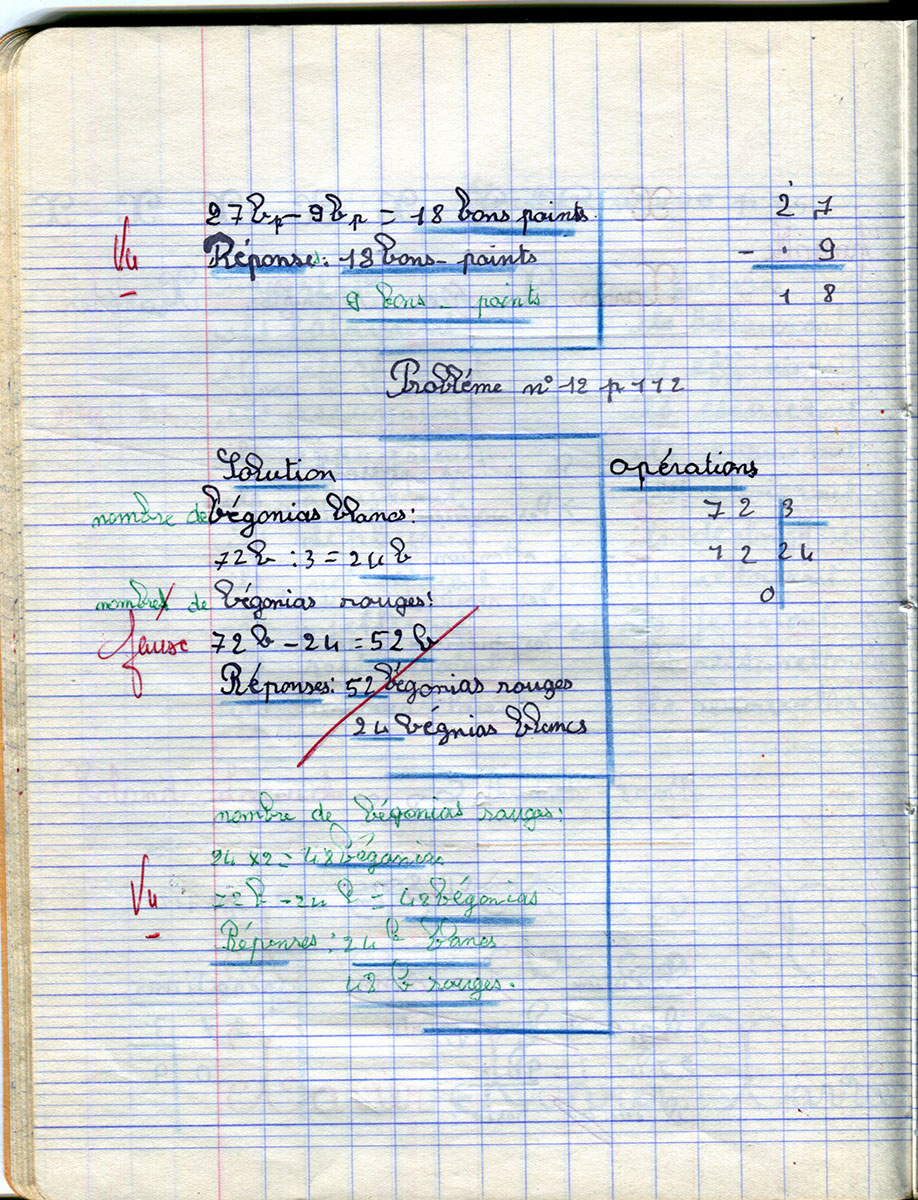 27 bp - 9 bp = 18 bons points
Vu
Réponses: 18 bons-points
9 bons-points
2 7
- . 9
1 8
Probléme n° 12 p 112
Solution
nombre de bégonias blancs:
72 b : 3 = 24 b
nombre de bégonias rouges:
fausse 72 b - 24 = 52 b
Réponses: 52 bégonias rouges
24 bégnias blancs
opérations
7 2 3
7 2 24
0
nombre de bégonias rouges:
24 x 2 = 48 bégonias
Vu
72 b - 24 b = 48 bégonias
Réponses: 24 b blancs
48 b rouges.